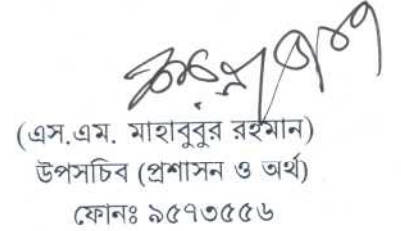 (এস.এম. মাহাবুবুর রহমান)
উপসচিব (প্রশাসন ও অর্থ)
ফোনঃ ৯৫৭৩৫৫৬